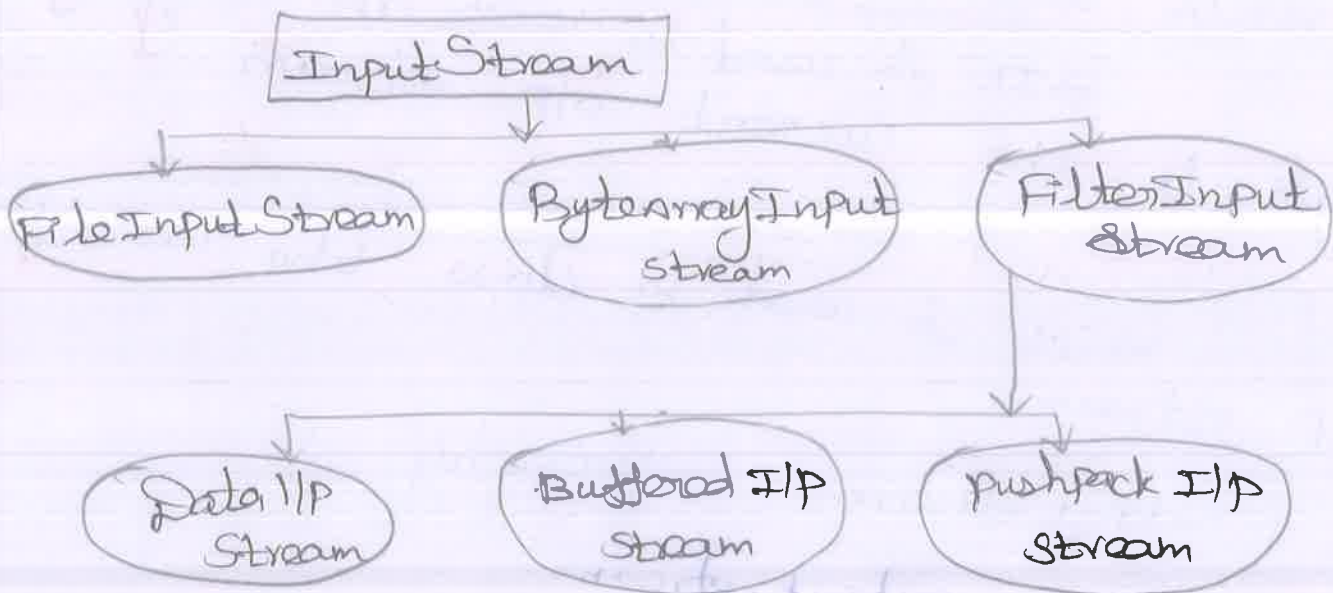 InputStream
FileInputStream
ByteArrayInput
stream
FilterInput
Stream
Data I/P
Stream
Buffered I/P
Stream
pushpack I/P
stream